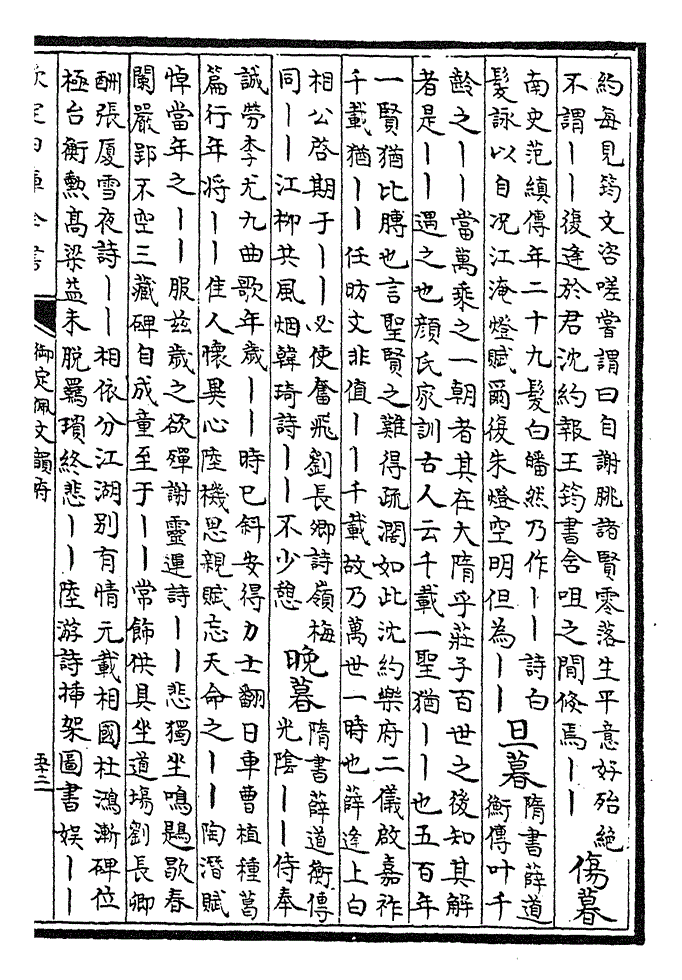 約每見筠文咨嗟嘗謂曰自謝朓諸賢零落生平意好殆絶
不謂丨丨復逢於君沈約報王筠書含咀之閒倏焉丨丨
傷暮
南史范縝傳年二十九髮白皤然乃作丨丨詩白
髮詠以自况江淹燈賦爾後朱燈空明但為丨丨
旦暮
隋書薛道
衡傳叶千
齡之丨丨當萬乘之一朝者其在大隋乎莊子百世之後知其解
者是丨丨遇之也顔氏家訓古人云千載一聖猶丨丨也五百年
一賢猶比膊也言聖賢之難得疏濶如此沈約樂府二儀啟嘉祚
千載猶丨丨任昉文非值丨丨千載故乃萬世一時也薛逢上白
相公啓期于丨丨必使奮飛劉長卿詩嶺梅
同丨丨江柳共風烟韓琦詩丨丨不少憩
晚暮
隋書薛道衡傳
光陰丨丨侍奉
誠勞李尤九曲歌年歲丨丨時已斜安得力士翻日車曹植種葛
篇行年將丨丨佳人懷異心陸機思親賦忘天命之丨丨陶潛賦
悼當年之丨丨服兹歲之欲殫謝靈運詩丨丨悲獨坐鳴鶗歇春
闌嚴郢不空三藏碑自成童至于丨丨常飾供具坐道場劉長卿
酬張厦雪夜詩丨丨相依分江湖别有情元載相國杜鴻漸碑位
極台衡勲髙梁益未脱羈瑣終悲丨丨陸游詩插架圖書娱丨丨
欽定四庫全書
御定佩文韻府